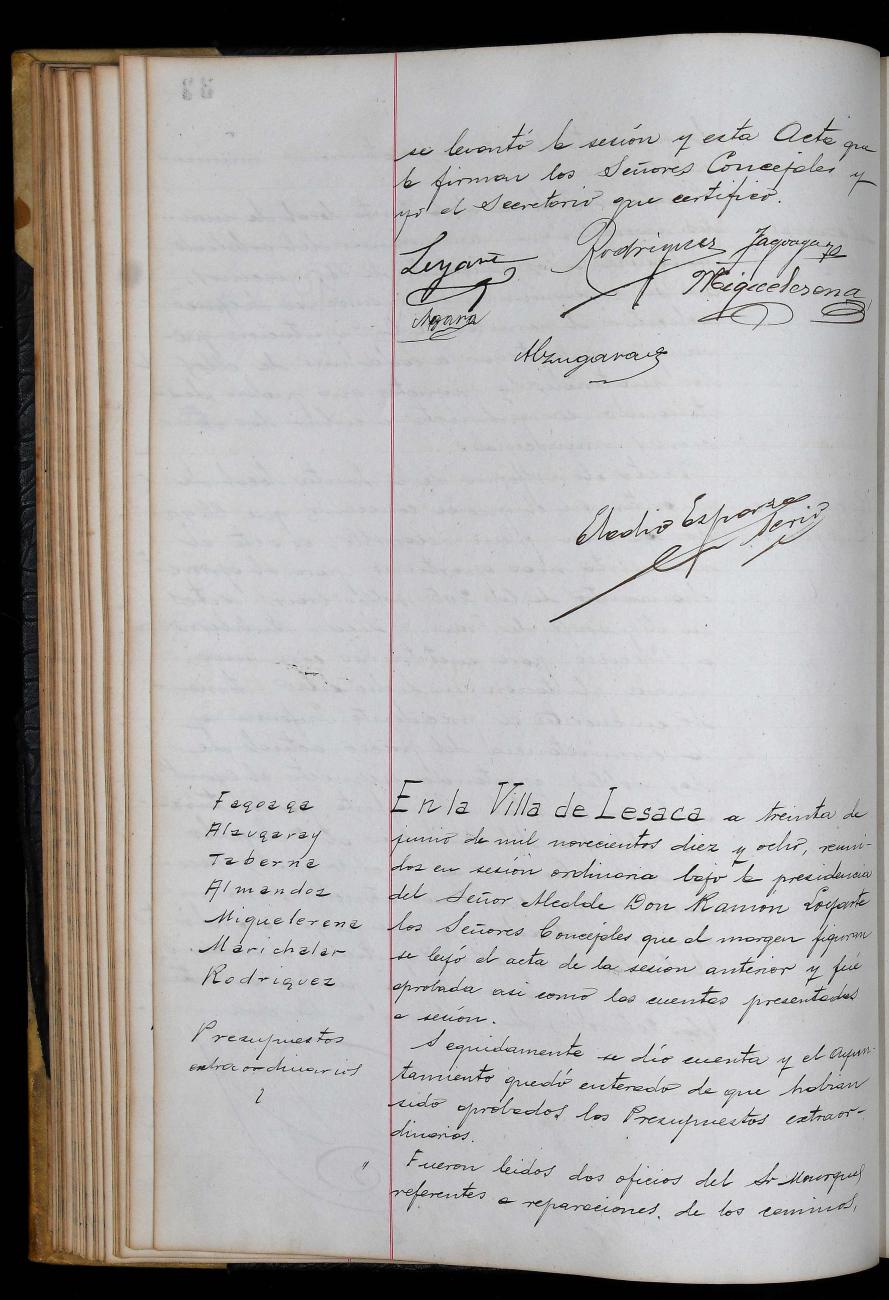 se levantó la sesión y esta Acta que
la firman los Señores Concejales y
yo el Secretario que certifico.
Loyarte Rodriguez Fagoaga
Miguelerena
Alzugaray
Eladio Esparza
Srio
Fagoaga
Alzugaray
Taberna
Almandoz
Miguelerena
Marichalar
Rodriguez
Presupuestos
extraordinarios
En la Villa de Lesaca a treinta de
junio de mil novecientos diez y ocho, reuni-
dos en sesión ordinaria bajo la presidencia
del Señor Alcalde Don Ramon Loyarte
los Señores Concejales que al margen figuran
se leyó el acta de la sesión anterior y fué
aprobada asi como las cuentas presentadas
a sesión.
Seguidamente se dió cuenta y el Ayun-
tamiento quedó enterado de que habian
sido aprobados los Presupuestos extraor-
dinarios.
Fueron leidos dos oficios del Sr
referentes a reparaciones de los caminos,